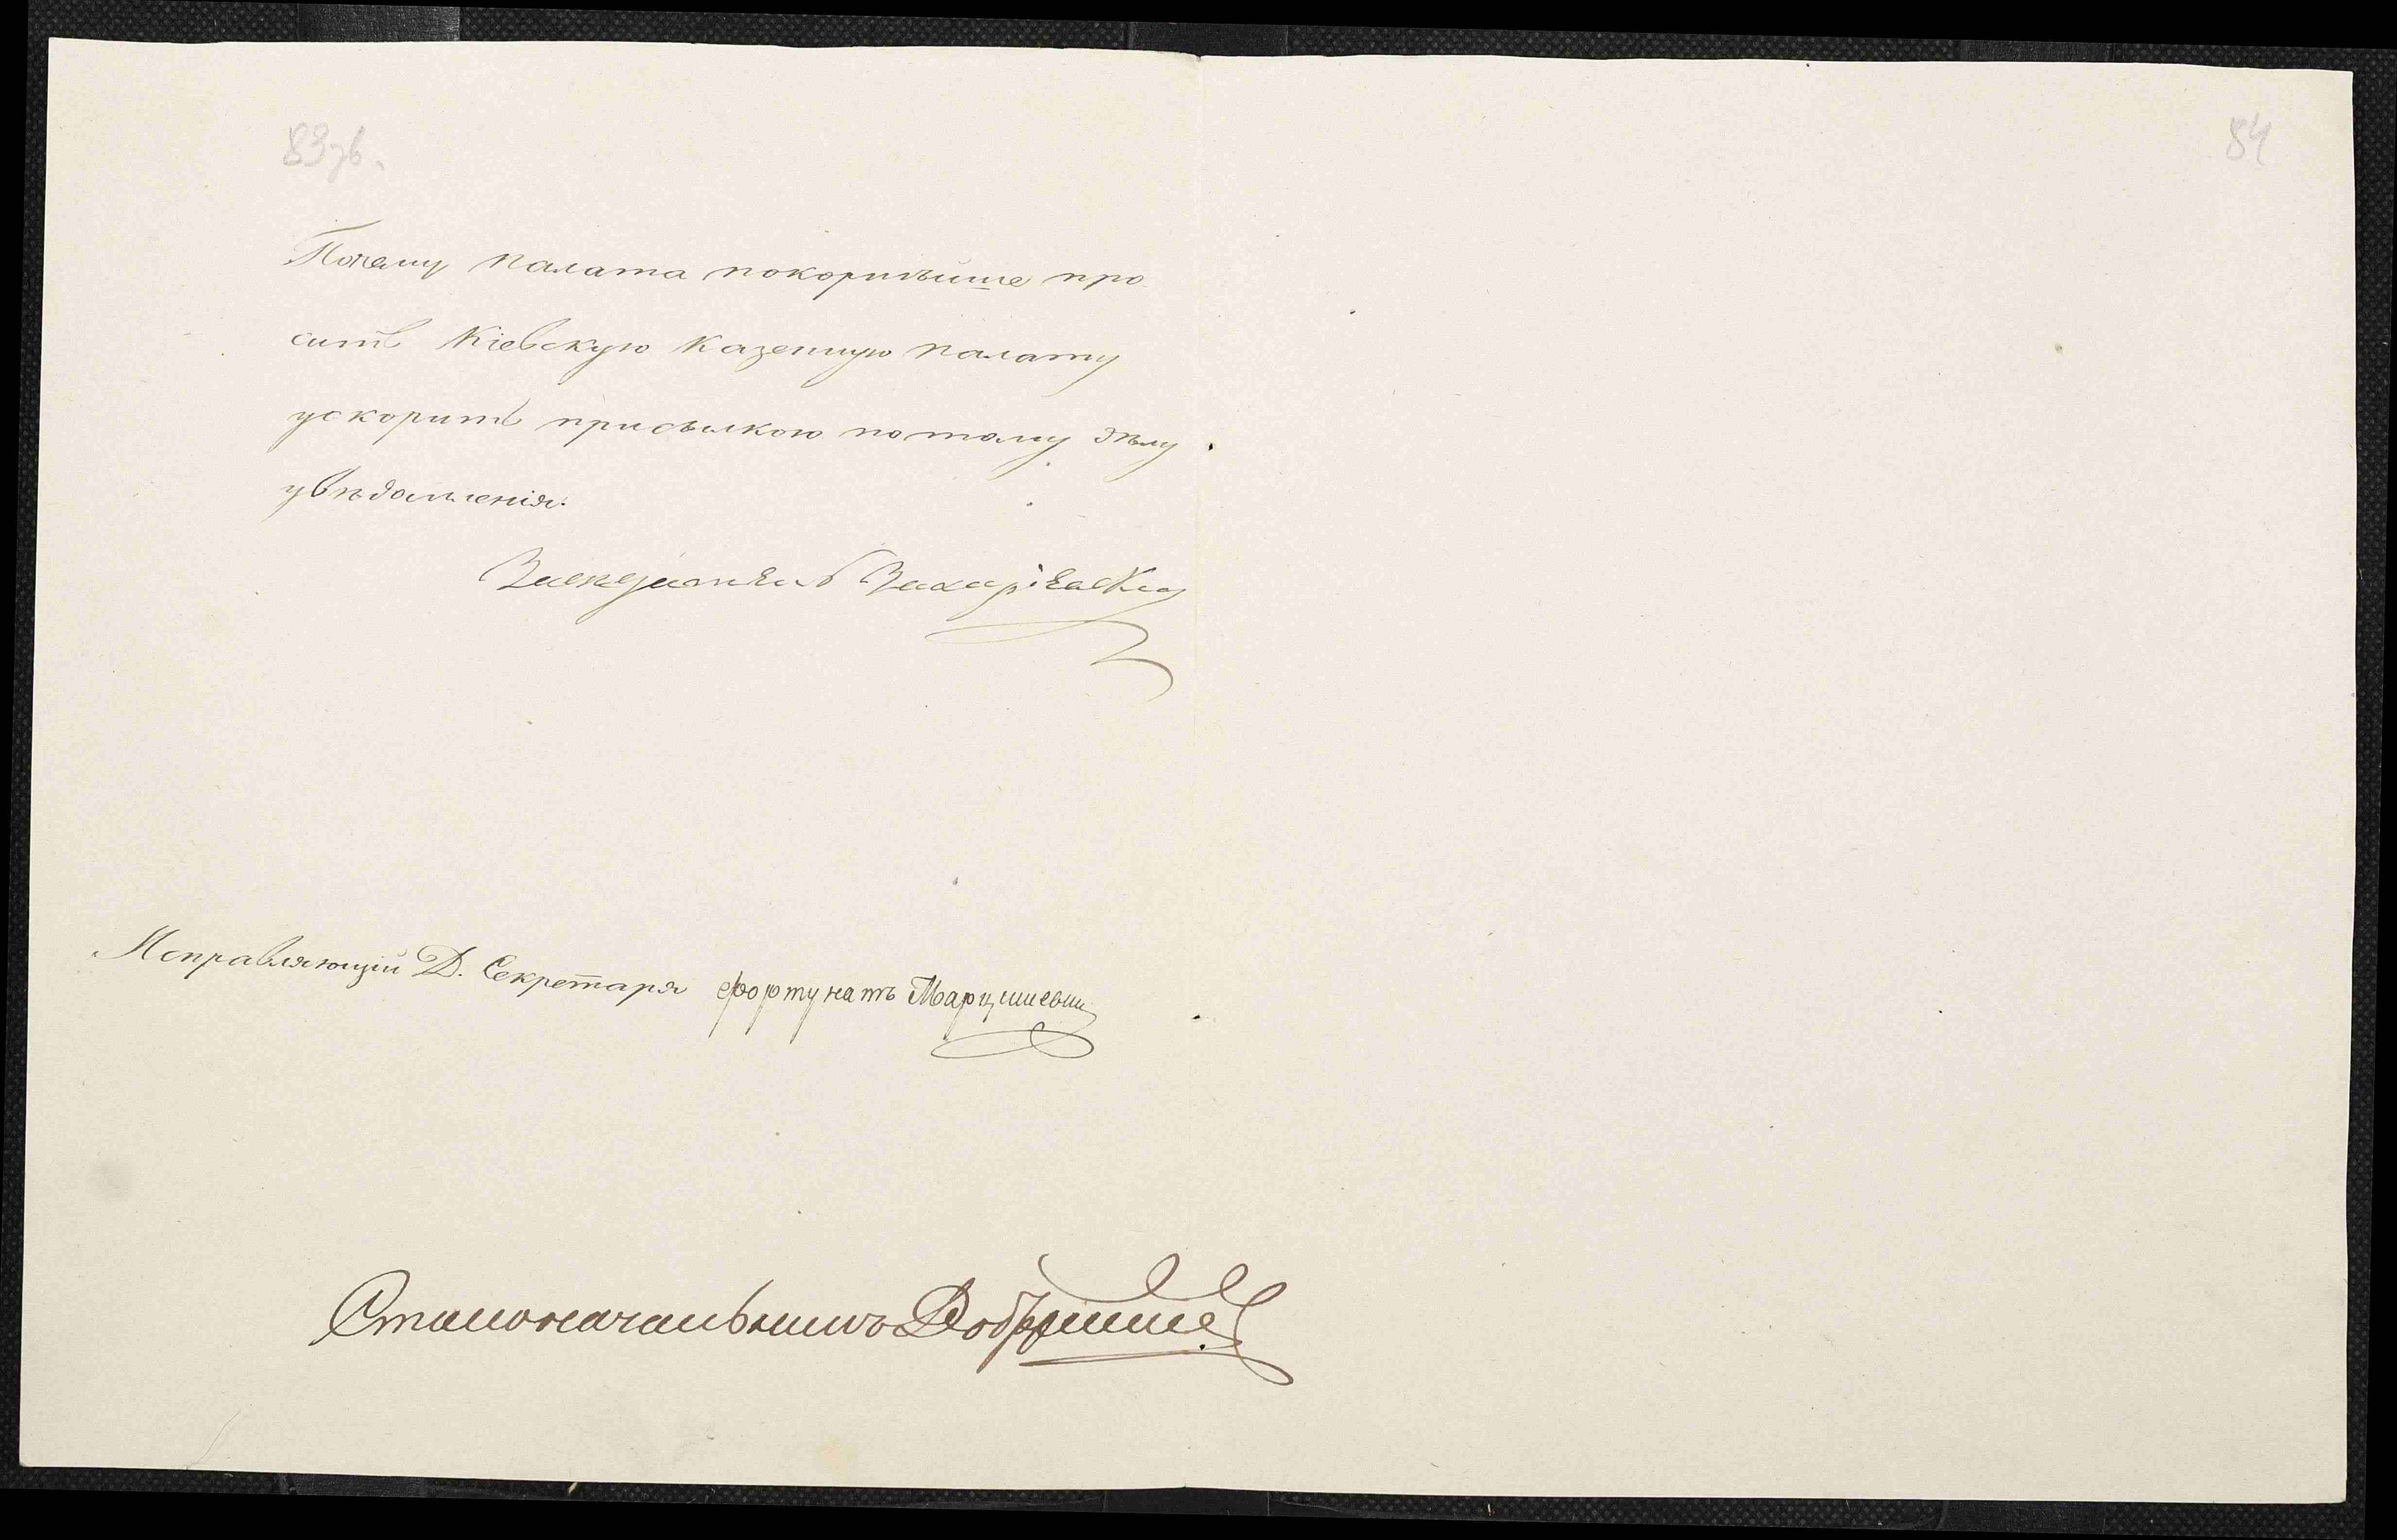 83 зв.
84
Почему палата покорнѣйше про
ситъ Кіевскую Казенную палату
ускорить присылкою по тому дѣлу
увѣдомленія.
Засѣдатель
Исправляющій Д. Секретаря Фортунатъ Марцишевичъ
Столоначальникъ